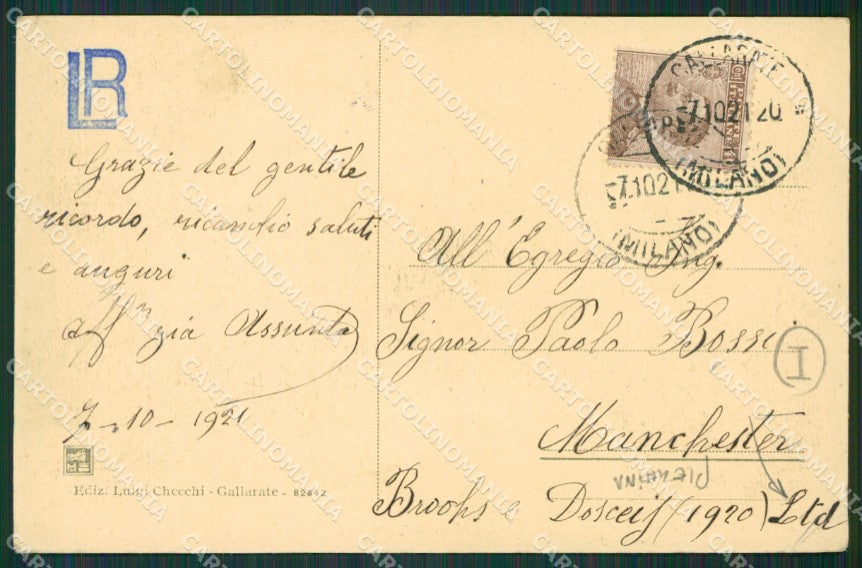 LR
Grazie del gentile
ricordo, ricambio saluti
e auguri
Aff zia Assunta
7-10-1921
Ediz. Luigi Checchi - Gallarate - 82842
GALLARATE
7.10.21.20
(MILANO)
7.10.21
(MILANO)
All'Egregio Ing.
Signor Paolo Bossi
I
Manchester
Brooks e (1920) Ltd
CARTOLINOMANIA